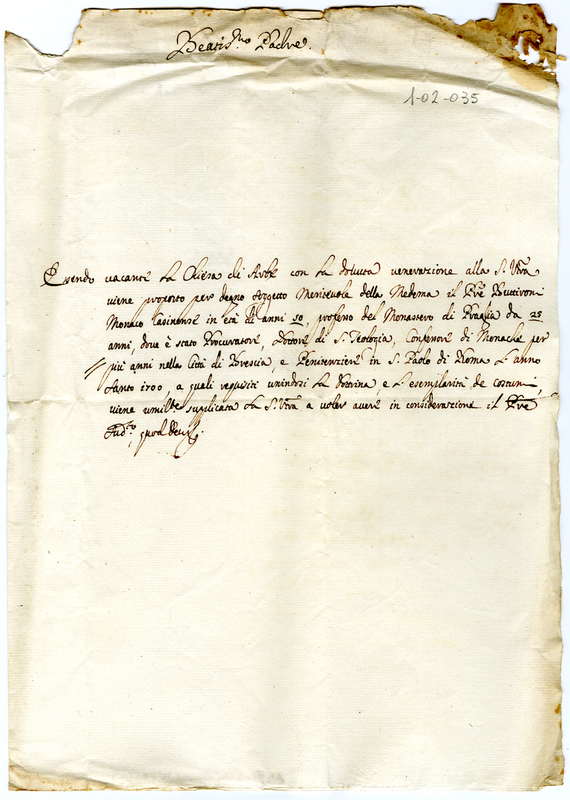 Beatis.mo Padre.
1-02-035
Essendo vacante la Chiesa di Arbe con la dovuta venerazione alla S. V.ra
viene proposto per degno soggetto Meritevole della Medema il P.re
Monaco Casinense in età di anni 50, professo del Monastero di Praglia da 25
anni, dove è stato Procuratore, Dottore di S. Teologia, Confessore di Monache per
più anni nella Città di Brescia, e Penitenziere in S. Paolo di Roma l'anno
Santo 1700, a quali requisiti unindosi la dottrina, e l'esemplarità de Costumi,
viene umilte suplicata la S. V.ra a voler avere in considerazione il P.re
Sud.to, quod Deus.